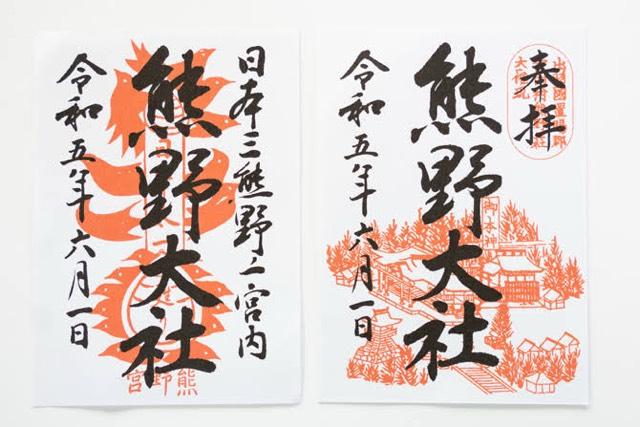 日本三熊野ノ一宮内
熊野大社
令和五年六月一日
熊野宮
奉拝
出羽國置賜郡
熊野大社
令和五年六月一日